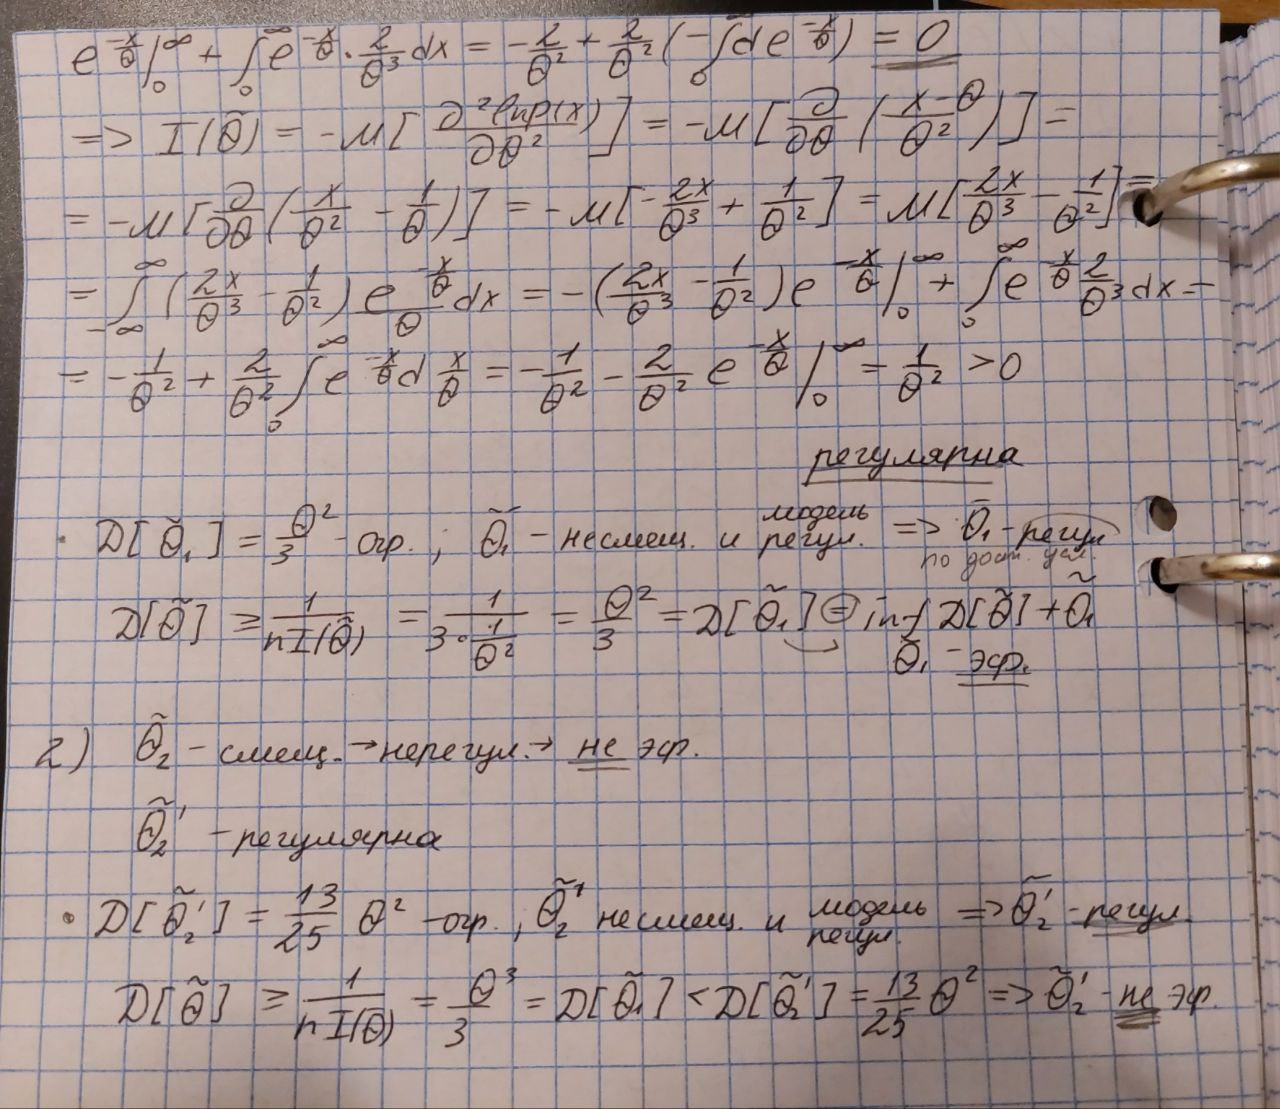 e^{-x/θ} |_0^∞ + ∫_0^∞ e^{-x/θ} · 2/θ³ dx = -2/θ² + 2/θ² (-∫_0^∞ d e^{-x/θ}) = 0
=> I(θ̃) = -M[∂² ln p(x)/∂θ²] = -M[∂/∂θ ((x-θ)/θ²)] =
= -M[∂/∂θ (x/θ² - 1/θ)] = -M[-2x/θ³ + 1/θ²] = M[2x/θ³ - 1/θ²] =
= ∫_{-∞}^∞ (2x/θ³ - 1/θ²) e^{-x/θ}/θ dx = -(2x/θ³ - 1/θ²) e^{-x/θ} |_0^∞ + ∫_0^∞ e^{-x/θ} 2/θ³ dx =
= -1/θ² + 2/θ² ∫_0^∞ e^{-x/θ} d x/θ = -1/θ² - 2/θ² e^{-x/θ} |_0^∞ = 1/θ² > 0
регулярна
· D[θ̃₁] = θ²/3 - огр. ; θ̃₁ - несмещ. и модель регул. => θ̃₁ - регул
по дост. усл.
D[θ̃] ≥ 1/(nI(θ̃)) = 1/(3·1/θ²) = θ²/3 = D[θ̃₁] = inf D[θ̃] + θ̃₁
θ̃₁ - эф.
2) θ̃₂ - смещ. → нерегул. → не эф.
θ̃₂' - регулярна
· D[θ̃₂'] = 13/25 θ² - огр. ; θ̃₂' несмещ. и модель регул. => θ̃₂' - регул.
D[θ̃] ≥ 1/(nI(θ)) = θ³/3 = D[θ̃₁] < D[θ̃₂'] = 13/25 θ² => θ̃₂' - не эф.